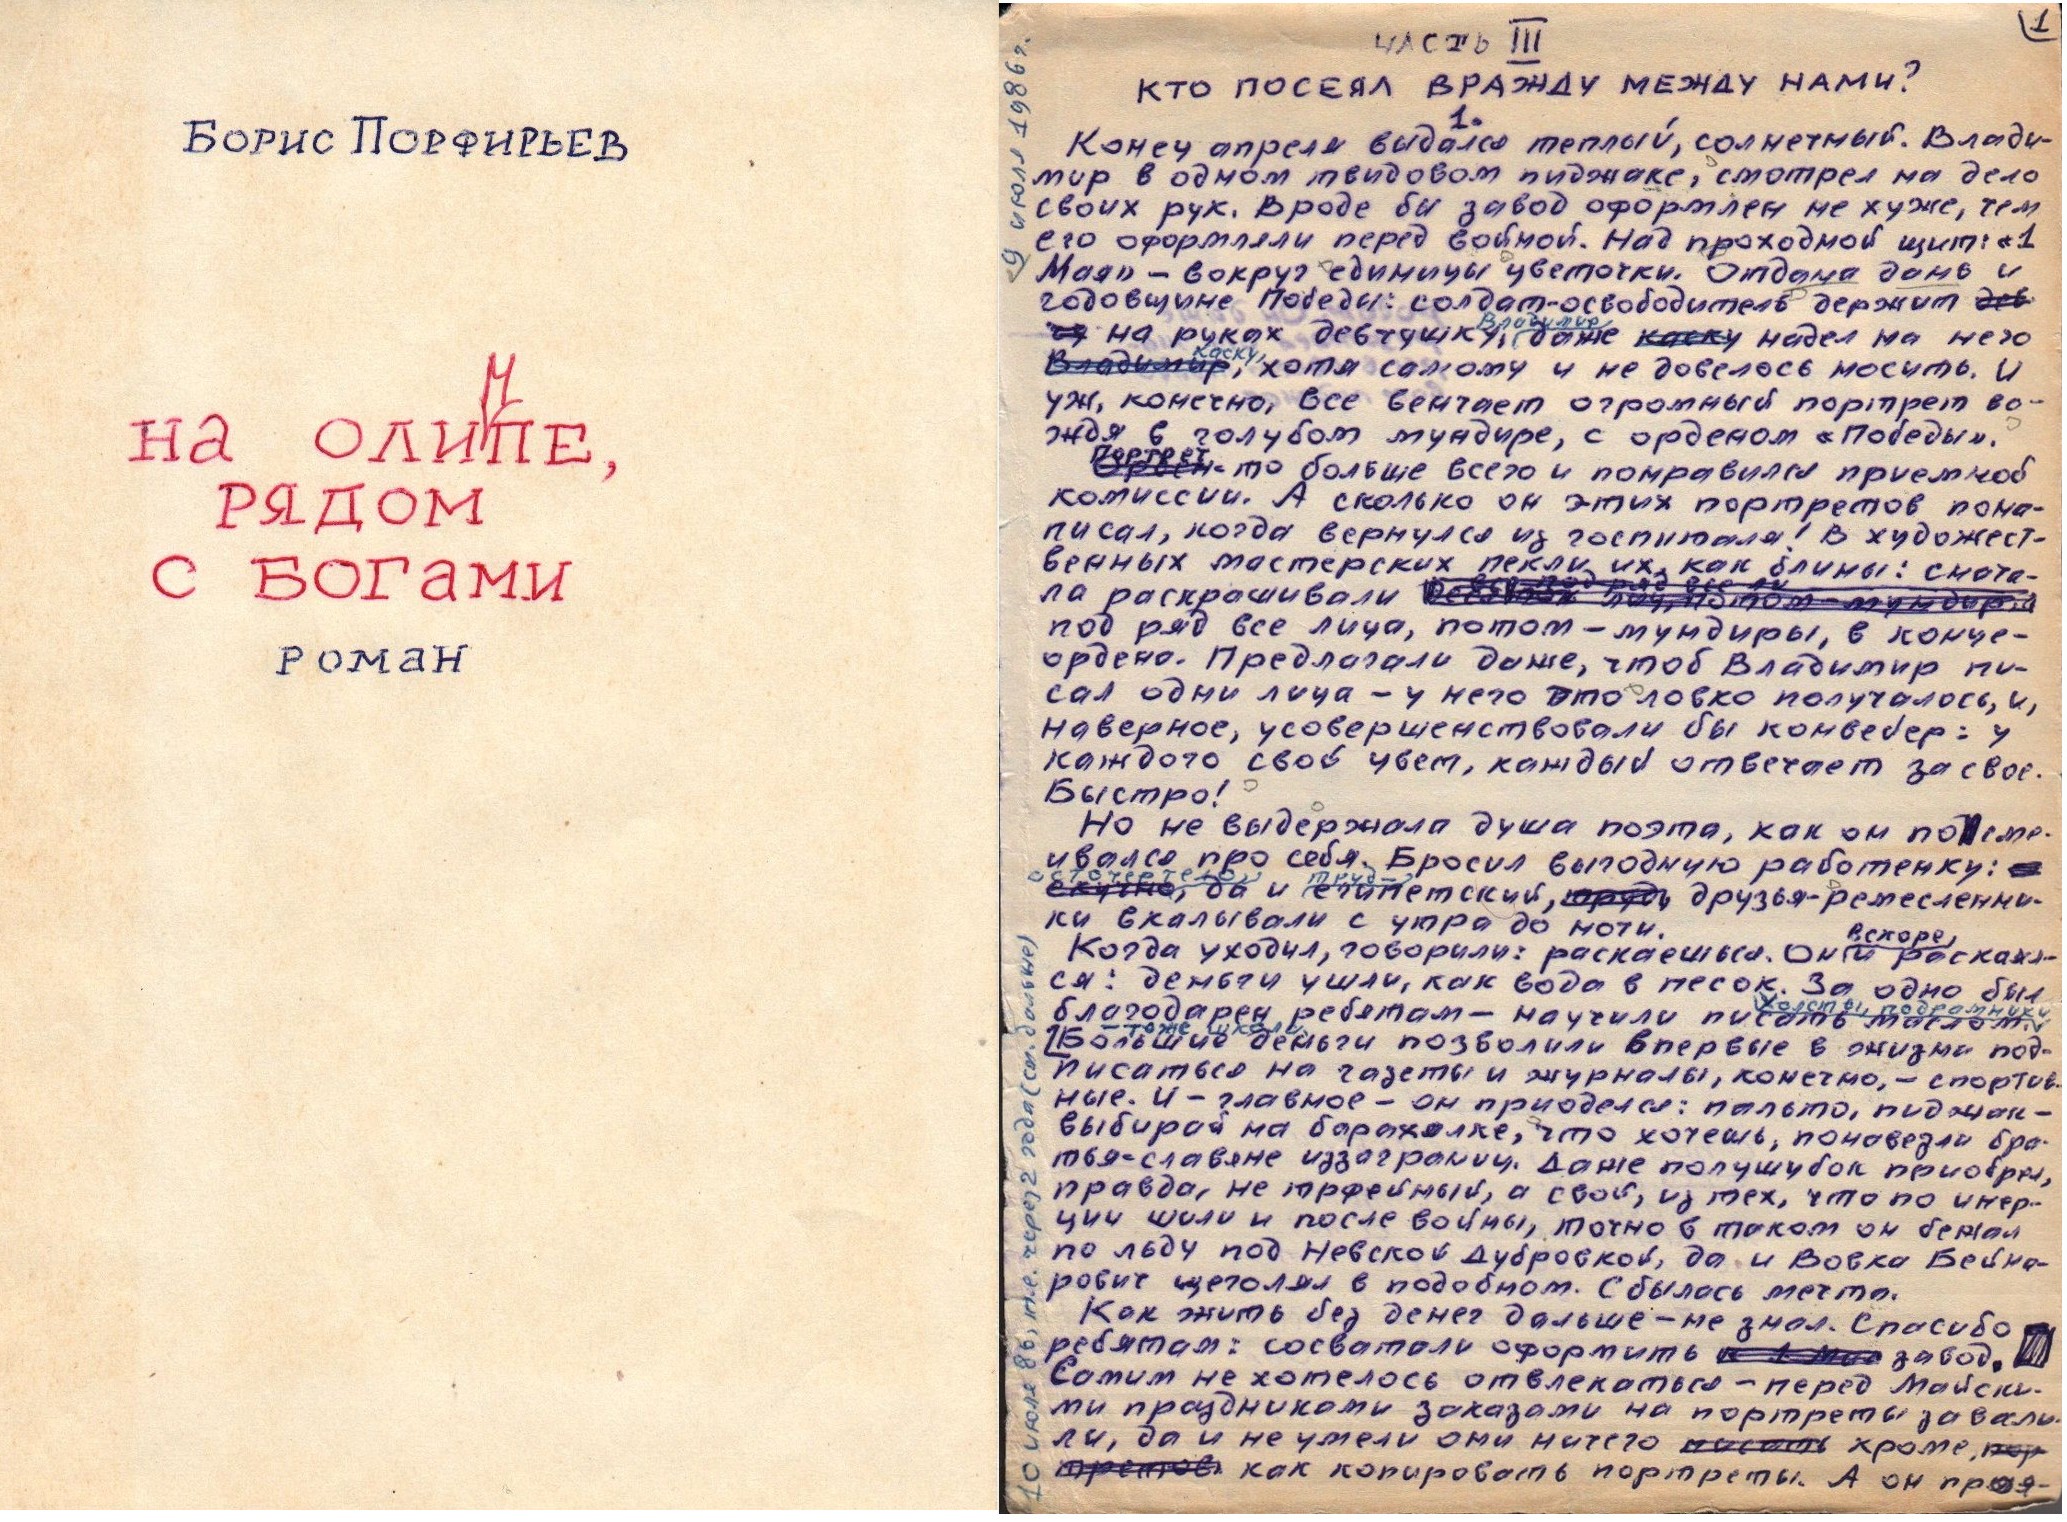 Борис Порфирьев
на Олимпе,
рядом
с богами
роман
1
Часть III
Кто посеял вражду между нами?
1.
Конец апреля выдался теплый, солнечный. Влади-
мир в одном твидовом пиджаке, смотрел на дело
своих рук. Вроде бы завод оформлен не хуже, чем
его оформляли перед войной. Над проходной щит: «1
Мая» – вокруг единицы цветочки. Отдана дань и
годовщине Победы: солдат-освободитель держит дев
на руках девчушку, Владимир даже каску надел на него
Владимир, каску, хотя самому и не довелось носить. И
уж, конечно, все венчает огромный портрет во-
ждя в голубом мундире, с орденом «Победы».
Портрет
Орден-то больше всего и понравился приемной
комиссии. А сколько он этих портретов пона-
писал, когда вернулся из госпиталя! В художест-
венных мастерских пекли их, как блины: снача-
ла раскрашивали лиц, потом – мундира
под ряд все лица, потом – мундиры, в конце –
ордена. Предлагали даже, чтоб Владимир пи-
сал одни лица – у него это ловко получалось, и,
наверное, усовершенствовали бы конвейер: у
каждого свой цвет, каждый отвечает за свое.
Быстро!
Но не выдержала душа поэта, как он посме-
ивался про себя. Бросил выгодную работенку:
осточертело, труд –
скучно, да и египетский, труд, друзья-ремесленни-
ки вкалывали с утра до ночи.
Когда уходил, говорили: раскаешься. Он и вскоре, раскаял-
ся: деньги ушли, как вода в песок. За одно был
благодарен ребятам – научили писать маслом. Холсты, подрамники
– тоже школа.
Большие деньги позволили впервые в жизни под-
писаться на газеты и журналы, конечно, – спортив-
ные. И – главное – он приоделся: пальто, пиджак –
выбирай на барахолке, что хочешь, понавезли бра-
тья-славяне иззаграниц. Даже полушубок приобрел,
правда, не трфейный, а свой, из тех, что по инер-
ции шили и после войны, точно в таком он бежал
по льду под Невской Дубровкой, да и Вовка Бейна-
рович щеголял в подобном. Сбылась мечта.
Как жить без денег дальше – не знал. Спасибо
ребятам: сосватали оформить к 1 мая завод.
Самим не хотелось отвлекаться – перед Майски-
ми праздниками заказами на портреты завали-
ли, да и не умели они ничего писать кроме, пор
третов как копировать портреты. А он проя-
9 июля 1986 г.
10 июля 86, т.е. через 2 года (см. дальше)